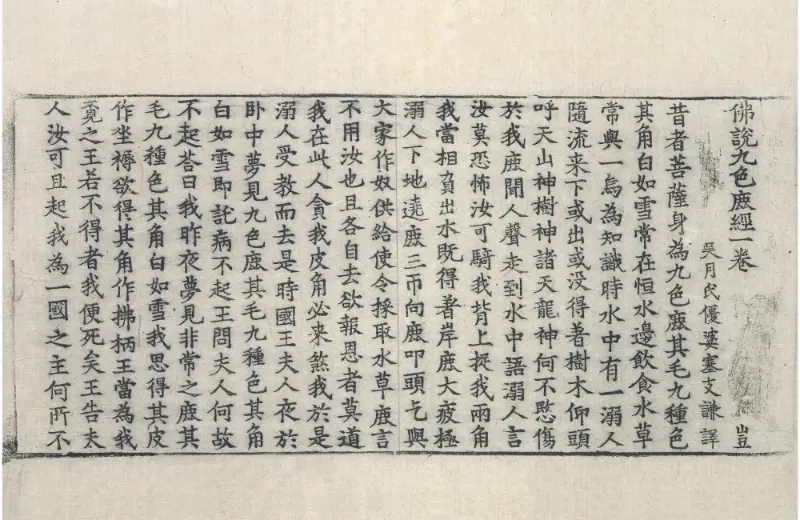 佛說九色鹿經一卷 豈
吳月氏優婆塞支謙譯
昔者菩薩身為九色鹿其毛九種色
其角白如雪常在恒水邊飲食水草
常與一烏為知識時水中有一溺人
隨流来下或出或没得著樹木仰頭
呼天山神樹神諸天龍神何不愍傷
於我鹿聞人聲走到水中語溺人言
汝莫恐怖汝可騎我背上捉我兩角
我當相負出水既得著岸鹿大疲極
溺人下地遶鹿三帀向鹿叩頭乞與
大家作奴供給使令採取水草鹿言
不用汝也且各自去欲報恩者莫道
我在此人貪我皮角必来煞我於是
溺人受教而去是時國王夫人夜於
卧中夢見九色鹿其毛九種色其角
白如雪即託病不起王問夫人何故
不起荅曰我昨夜夢見非常之鹿其
毛九種色其角白如雪我思得其皮
作坐褥欲得其角作拂柄王當為我
覓之王若不得者我便死矣王告夫
人汝可且起我為一國之主何所不